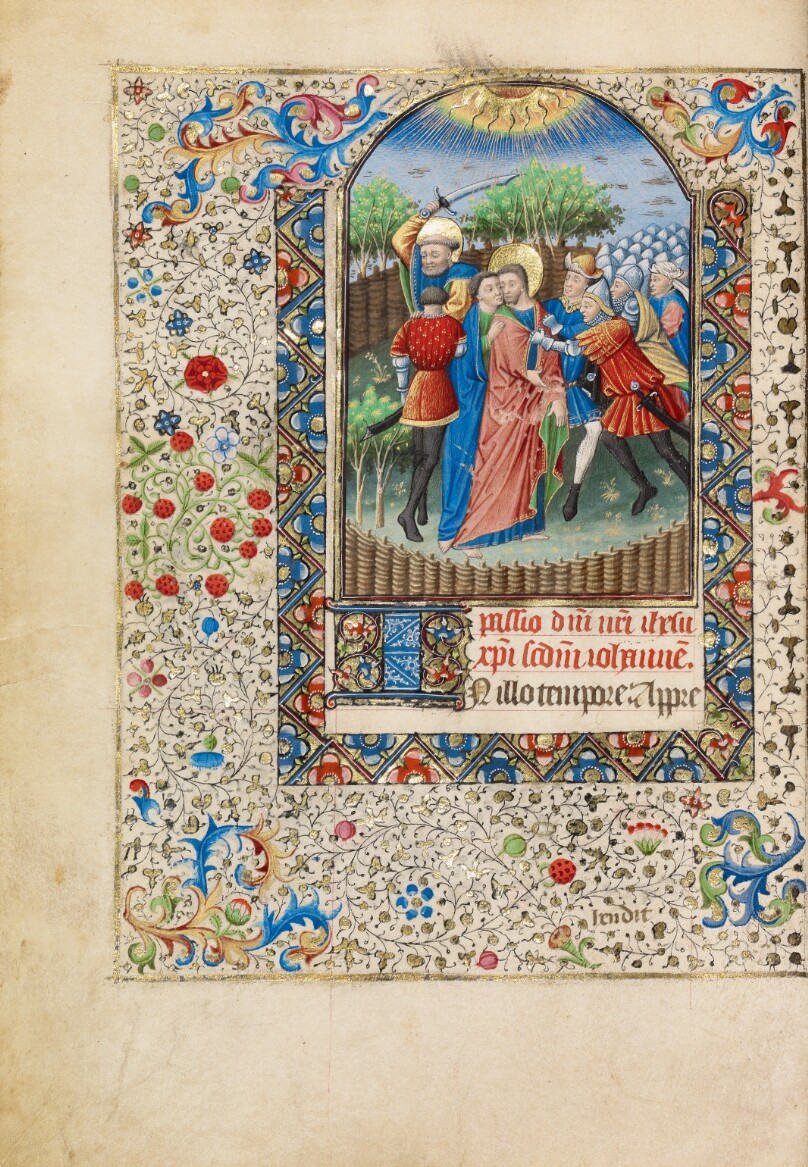 passio dñi nr̃i ihesu
xp̃i scdm̃ iohannē.
IN illo tempore: Appre
hendit